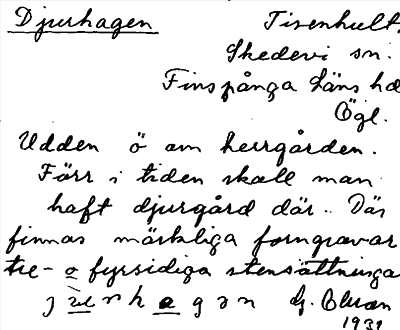 Djurhagen Tisenhult.
Skedevi sn.
Finspånga läns hd
Ögl.
Udden ö om herrgården.
Förr i tiden skall man
haft djurgård där. Där
finnas märkliga forngravar
tre- o fyrsidiga stensättninga
1931